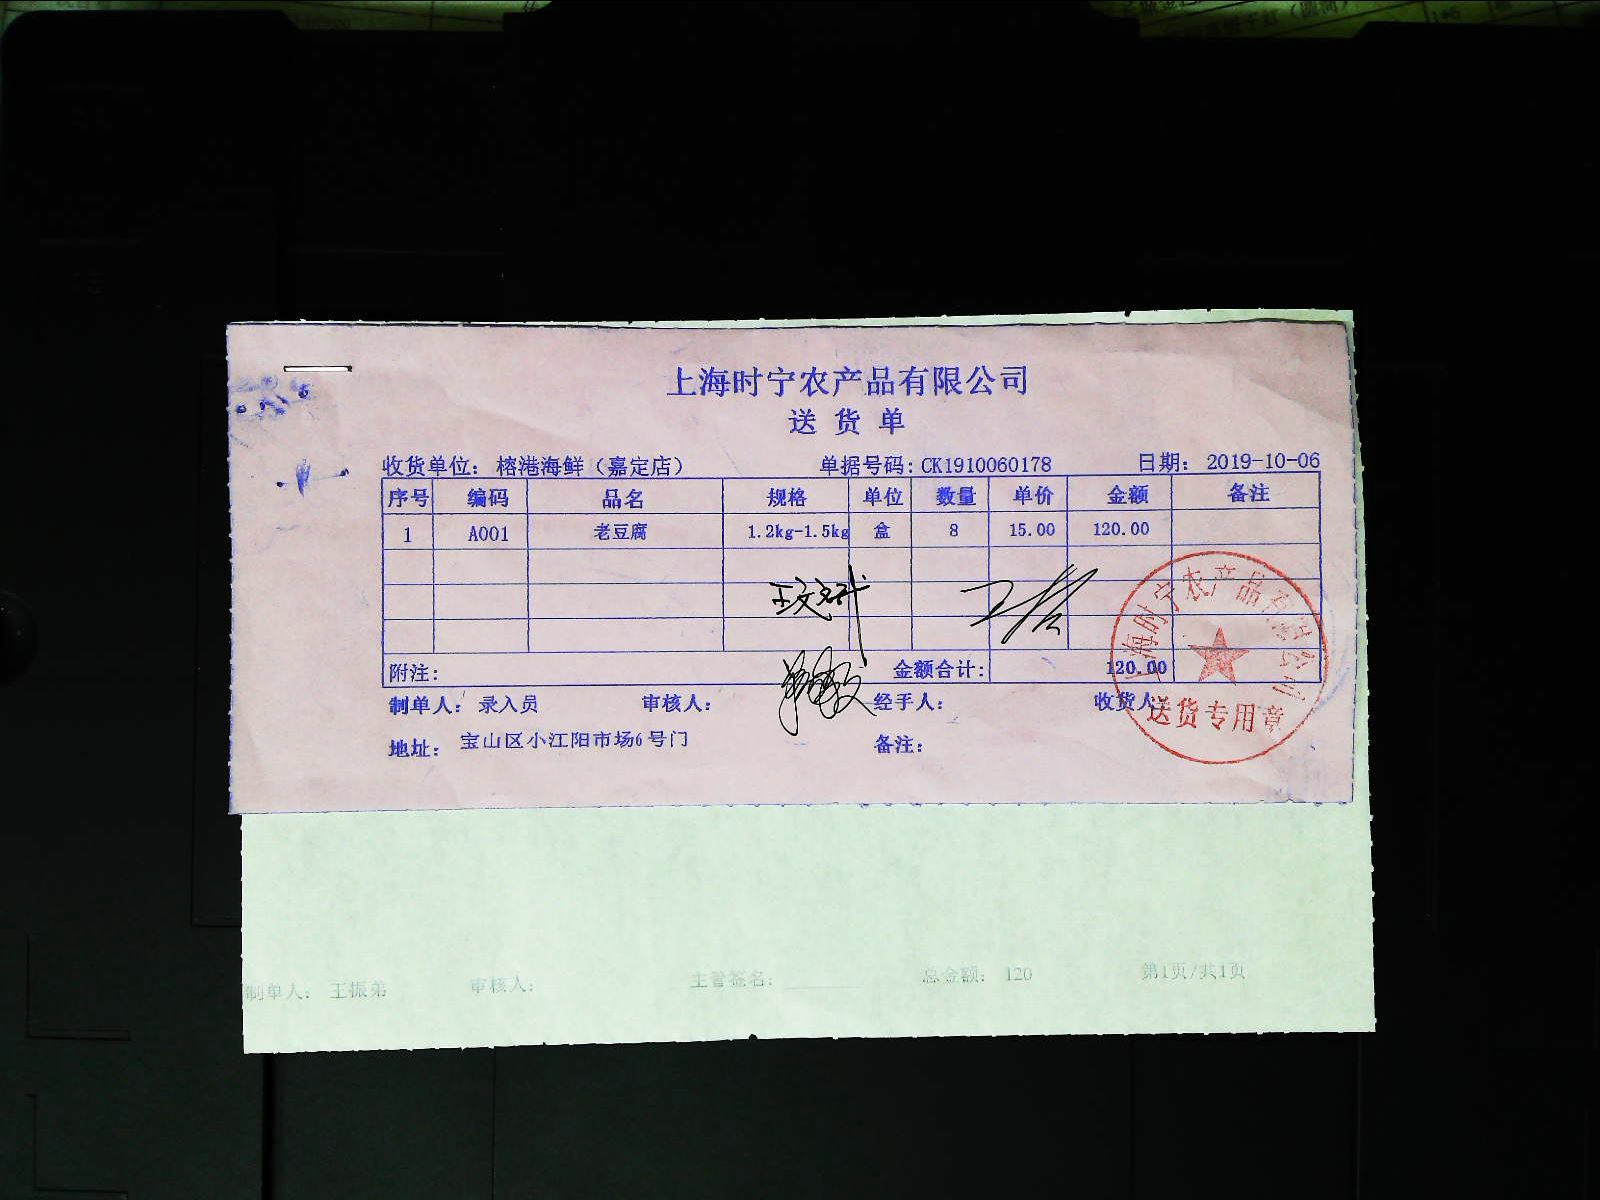 上海时宁农产品有限公司
送货单
收货单位：榕港海鲜（嘉定店） 单据号码：CK1910060178 日期：2019-10-06
序号 编码 品名 规格 单位 数量 单价 金额 备注
1 A001 老豆腐 1.2kg-1.5kg 盒 8 15.00 120.00
附注： 金额合计： 120.00
制单人：录入员 审核人： 经手人： 收货人
地址：宝山区小江阳市场6号门 备注：
上海时宁农产品有限公司
送货专用章
制单人： 王振弟 审核人： 主管签名： 总金额： 120 第1页/共1页